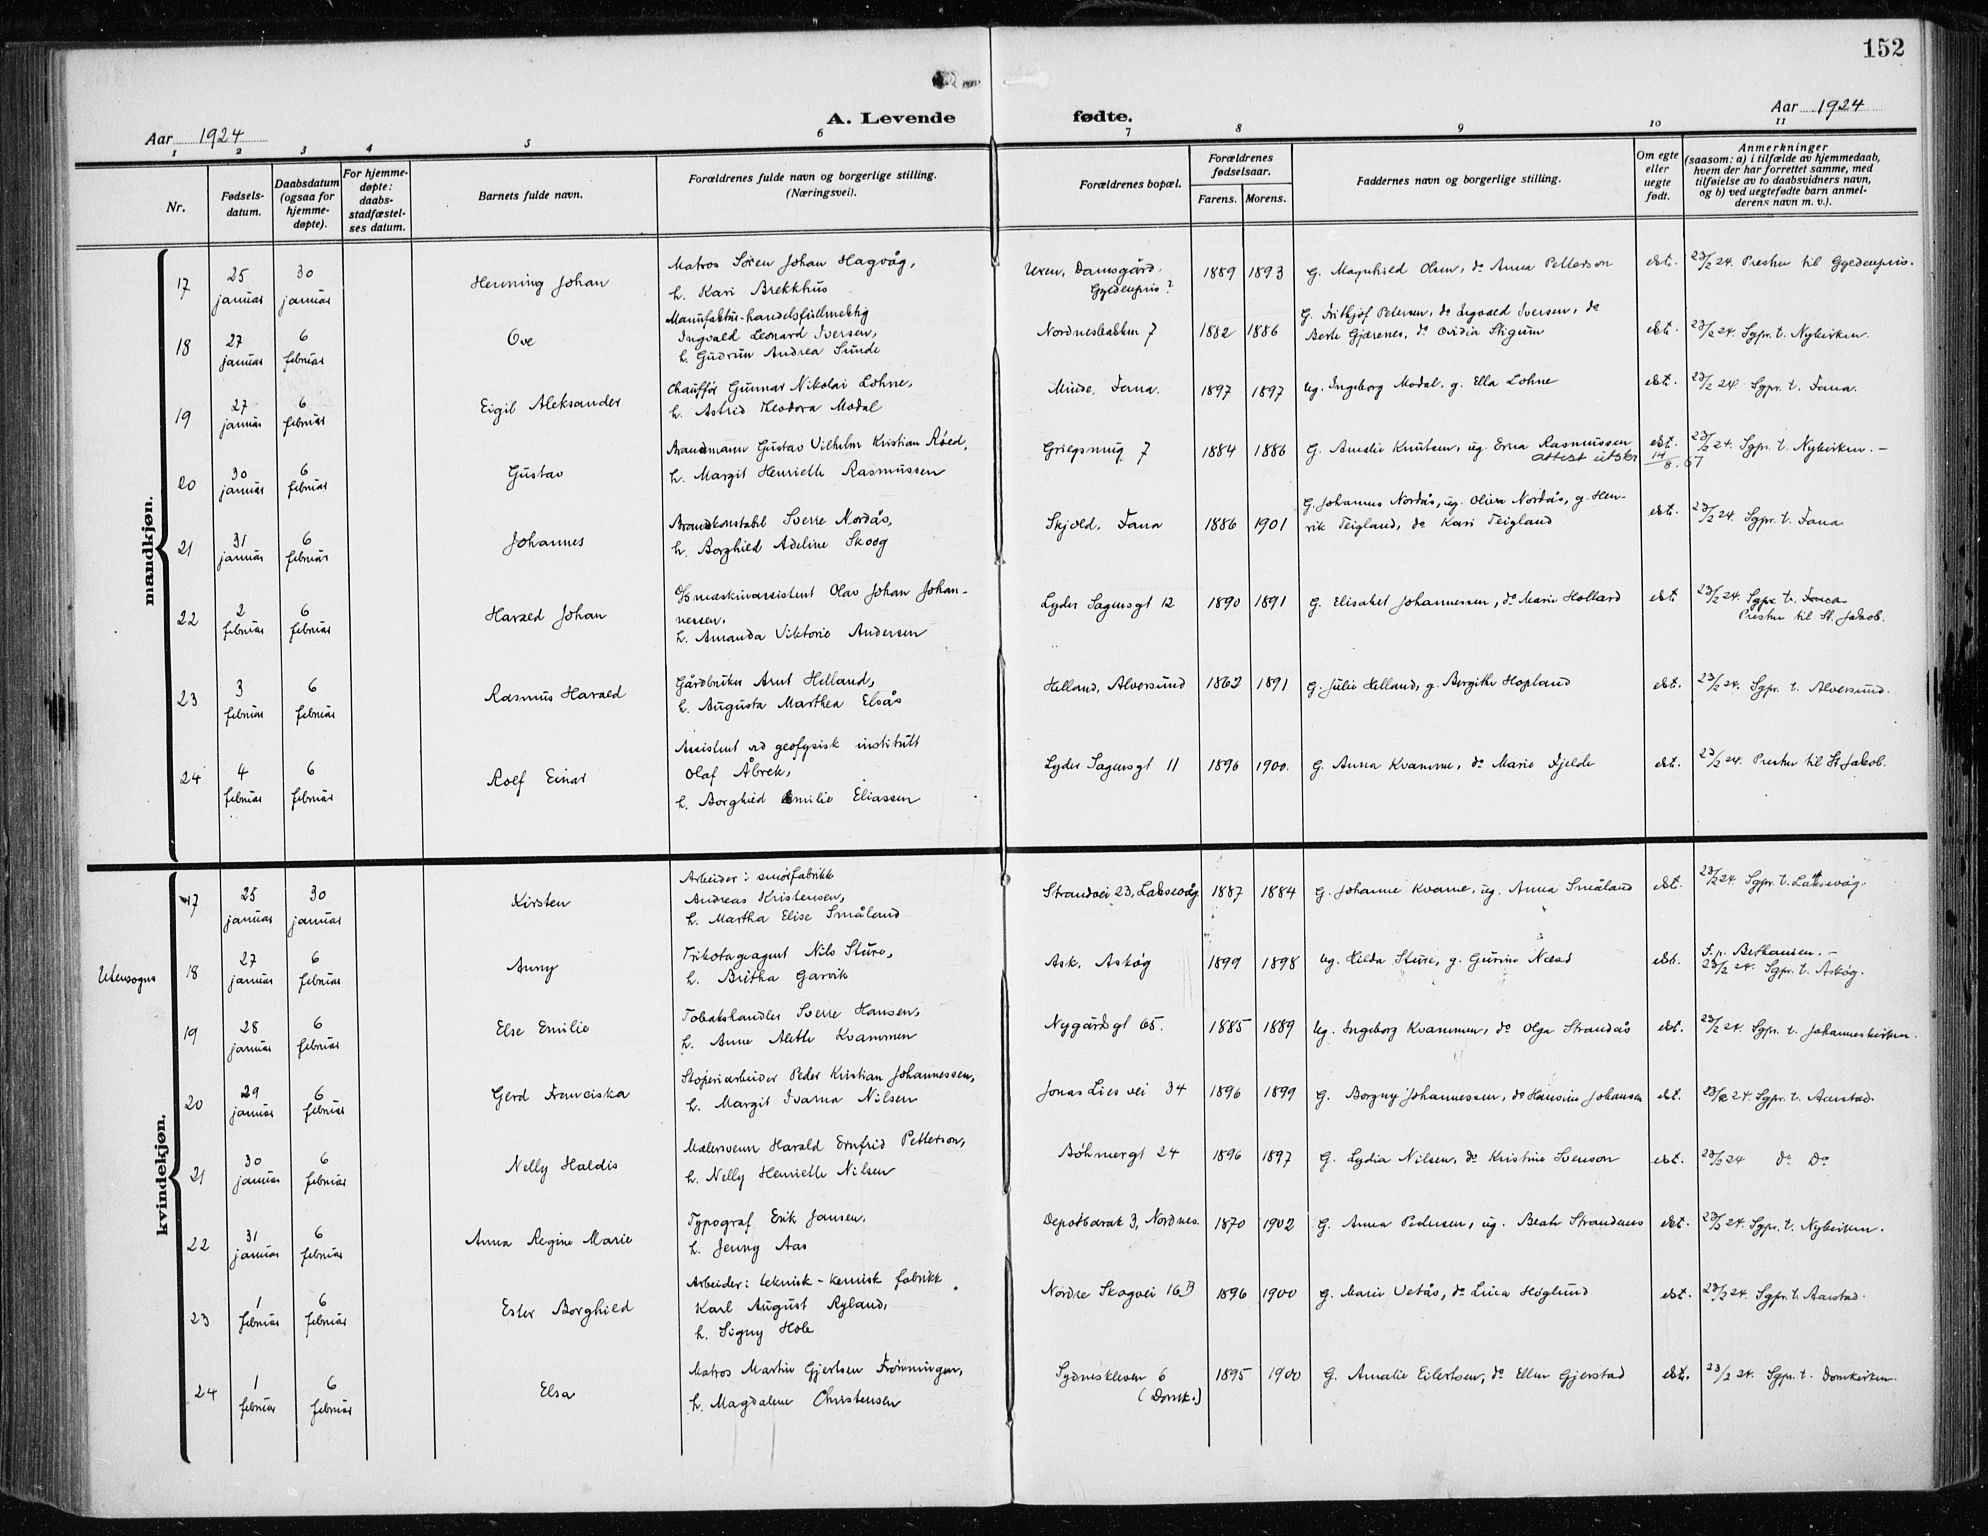 152
A. Levende fødte.
Aar 1924
Aar 1924
1 2 3 4 5 6 7 8 9 10 11
Nr.
Fødsels-
datum.
Daabsdatum
(ogsaa for
hjemme-
døpte).
For hjemme-
døpte:
daabs-
stadfæstel-
ses datum.
Barnets fulde navn.
Forældrenes fulde navn og borgerlige stilling.
(Næringsvei).
Forældrenes bopæl.
Forældrenes
fødselsaar.
Farens. Morens.
Faddernes navn og borgerlige stilling.
Om egte
eller
uegte
født.
Anmerkninger
(saasom: a) i tilfælde av hjemmedaab,
hvem der har forrettet samme, med
tilføielse av to daabsvidners navn,
og b) ved uegtefødte barn anmel-
derens navn m. v.).
mandkjøn.
17 25 januar 30 januar Henning Johan
Matros Søren Johan Hagvåg,
h. Kari Brekkhus
Damsgård.
Gyldenpris?
1889 1893 G. Magnhild Olsen, do Anna Petterson ekt. 23/2 24. Presten til Gyldenpris.
18 27 januar 6 februar Ove
Manufaktur-handelsfullmektig
Ingvald Leonard Iversen,
h. Gudrun Andrea Sunde
Nordnesbakken 7 1882 1886
G. Fritjof Petersen, do Ingvald Iversen, do
Berte Gjærenes, do Ovidia Stigum
ekt. 23/2 24. Sgpr. t. Nykirken.
19 27 januar 6 februar Eigil Aleksander
Chauffør Gunnar Nikolai Lohne,
h. Astrid Theodora Modal
Minde, Fana. 1897 1897 Ug. Ingeborg Modal, g. Ella Lohne ekt. 23/2 24 Sgpr. t. Fana.
20 30 januar 6 februar Gustav
Brandmann Gustav Vilhelm Kristian Røed,
h. Margit Henriette Rasmussen
Griegsmug 7 1884 1886 G. Amalie Knutsen, ug. Erna Rasmussen ekt. 23/2 24. Sgpr. t. Nykirken.-
attest utskr 14/8.67
21 31 januar 6 februar Johannes
Brandkonstabel Sverre Nordås,
h. Borghild Adeline Skoog
Skjold, Fana 1886 1901
G. Johannes Nordås, ug. Olina Nordås, g. Hen-
rik Teigland, do Kari Teigland
ekt. 23/2 24. Sgpr. t. Fana.
22 2 februar 6 februar Harald Johan
O/s maskinassistent Olav Johan Johan-
nessen,
h. Amanda Viktoria Andersen
Lyder Sagensgt 12 1890 1891 G. Elisabet Johannessen, do Marie Holland ekt. 23/2 24. Sgpr t. Fana
Presten til St. Jakob.
23 3 februar 6 februar Rasmus Harald
Gårdbruker Arnt Helland,
h. Augusta Marthea Elsås
Helland, Alversund 1862 1891 G. Julie Helland, g. Bergithe Hopland ekt. 23/2 24. Sgpr. t. Alversund.
24 4 februar 6 februar Rolf Einar
Assistent ved geofysisk institutt
Olaf Åbrek,
h. Borghild Emilie Eliassen
Lyder Sagensgt 11 1896 1900. G. Anna Kvamme, do Marie Fjelde ekt. 23/2 24. Presten til St Jakob.
kvindekjøn.
17 25 januar 30 januar Kirsten
Arbeider i smørfabrikk
Andreas Kristensen,
h. Martha Elise Småland
Strandvei 23, Laksevåg. 1887 1884 G. Johanne Kvarne, ug. Anna Småland ekt. 23/2 24. Sgpr. t. Laksevåg.
Utensogns 18 27 januar 6 februar Anny
Trikotageagent Nils Sture,
h. Britha Garvik
Ask, Askøy 1899 1898 Ug. Hilda Sture, g. Gurine Næss ekt.
F. p. Bethanien.-
23/2 24. Sgpr. t. Askøy.
19 28 januar 6 februar Else Emilie
Tobakshandler Sverre Hansen,
h. Anne Alette Kvammen
Nygårdsgt 65. 1885 1889 Ug. Ingeborg Kvammen, do Olga Strandås ekt. 23/2 24. Sgpr. t. Johanneskirken.
20 29 januar 6 februar Gerd Franciska
Støperiarbeider Peder Kristian Johannessen,
h. Margit Ivarna Nilsen
Jonas Lies vei 34 1896 1899 G. Borgny Johannessen, do Hansine Johansen ekt. 23/2 24. Sgpr. t. Aarstad.
21 30 januar 6 februar Nelly Haldis
Malersvenn Harald Ernfrid Petterson,
h. Nelly Henriette Nilsen
Bøhmergt 24 1896 1897 G. Lydia Nilsen, do Kristine Svenson ekt. 23/2 24 do Do
22 31 januar 6 februar Anna Regine Marie
Typograf Erik Jansen,
h. Jenny Aas
Depotbarak 3, Nordnes. 1870 1902 G. Anna Pedersen, ug. Beate Strandenes ekt. 23/2 24. Sgpr. t. Nykirken.
23 1 februar 6 februar Ester Borghild
Arbeider i teknisk-kemisk fabrikk
Karl August Ryland,
h. Signy Hole
Nordre Skogvei 16B 1896 1900 G. Marie Vetås, do Lina Høglund ekt. 23/2 24. Sgpr. t. Aarstad.
24 1 februar 6 februar Elsa
Matros Martin Gjertsen Frønningen,
h. Magdalene Christensen
Sydnesklesen 6
(Domk.)
1895 1900 G. Amalie Eilertsen, do Ellen Gjerstad ekt. 23/2 24. Sgpr. t. Domkirken.